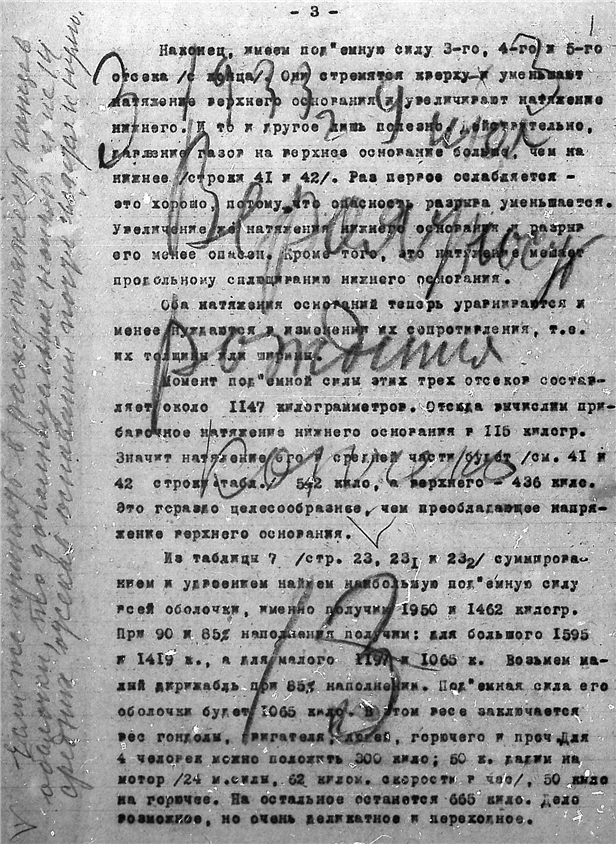 - 3 -
Наконец, имеем под"емную силу 3-го, 4-го и 5-го
отсека /с конца/. Они стремятся кверху и уменьшают
натяжение верхнего основания и увеличивают натяжение
нижнего. И то и другое лишь полезно. Действительно,
давление газов на верхнее основание больше, чем на
нижнее /строки 41 и 42/. Раз первое ослабляется -
это хорошо, потому что опасность разрыва уменьшается.
Увеличение же натяжения нижнего основания и разрыв
его менее опасен. Кроме того, это натяжение мешает
продольному сплющиванию нижнего основания.
Оба натяжения оснований теперь уравниваются и
менее нуждаются в изменении их сопротивления, т.е.
их толщины или ширины.
Момент под"емной силы этих трех отсеков состав-
ляет около 1147 килограмметров. Отсюда вычислим при-
бавочное натяжение нижнего основания в 115 килогр.
Значит натяжение его в средней части будет /см. 41 и
42 строки табл./ 542 кило, а верхнего - 436 кило.
Это гораздо целесообразнее, чем преобладающее напря-
жение верхнего основания.
Из таблицы 7 /стр. 23, 23₁ и 23₂/ суммирова-
нием и удвоением найдем наибольшую под"емную силу
всей оболочки, именно получим 1950 и 1462 килогр.
При 90 и 85% наполнения получим: для большого 1595
и 1419 к., а для малого 1197 и 1065 к. Возьмем ма-
лый дирижабль при 85% наполнении. Под"емная сила его
оболочки будет 1065 кило. В этом весе заключается
вес гондолы, двигателя, людей, горючего и проч. Для
4 человек можно положить 300 кило; 50 к. дадим на
мотор /24 м.силы, 62 килом. скорости в час/, 50 кило
на горючее. На остальное останется 665 кило. Дело
возможное, но очень деликатное и переходное.
3 1933 г 9 мая
Вероятность
рождения
В
Если же принять в расчет тяжесть концов
оболочки, то
средних отсеков оснований